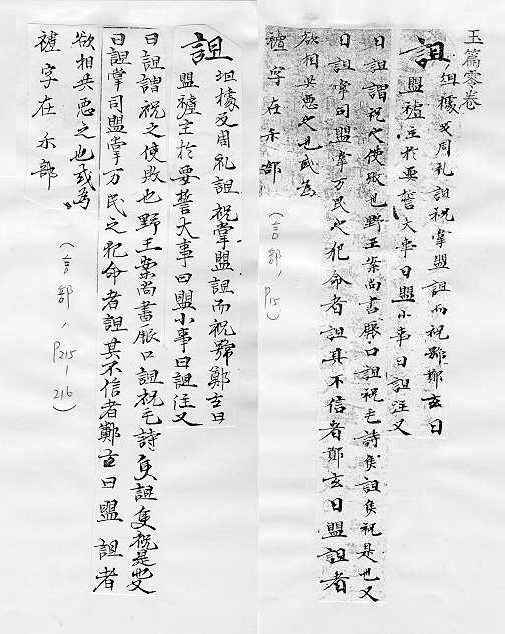 玉篇零卷
詛 俎據反周礼詛祝掌盟詛而祝號鄭玄曰
盟禮主於要誓大事曰盟小事曰詛注又
曰詛謂祝之使敗也野王案尚書厥口詛祝毛詩隻詛隻祝是也又
曰詛掌司盟掌万民之犯命者詛其不信者鄭玄曰盟詛者
欲相共惡之也或為
字在示部
(言部,P15)
詛 俎據反周礼詛祝掌盟詛而祝號鄭玄曰
盟禮主於要誓大事曰盟小事曰詛注又
曰詛謂祝之使敗也野王案尚書厥口詛祝毛詩隻詛隻祝是也又
曰詛掌司盟掌万民之犯命者詛其不信者鄭玄曰盟詛者
欲相共惡之也或為
字在示部
(言部,P215-216)